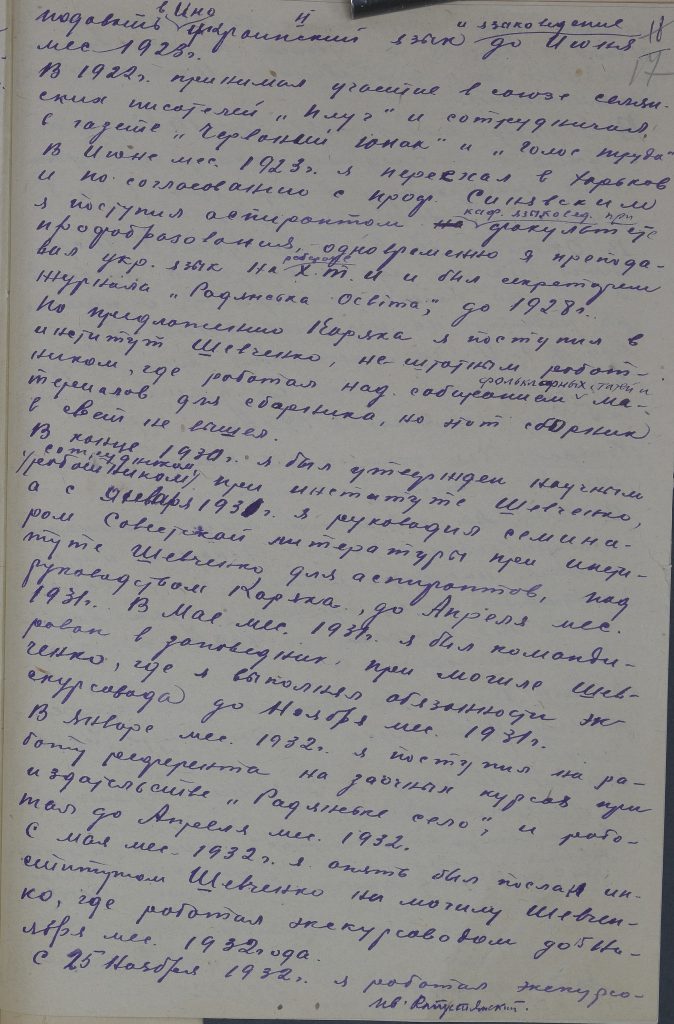 18
17
в Ино и языковедение
подавать украинский язык до Июня
мес 1923г.
В 1922г. принимал участие в союзе селян-
ских писателей „Плуг" и сотрудничал
в газете „Червоний юнак" и „Голос труда"
В Июне мес. 1923г. я переехал в Харьков
и по согласованию с проф. Синявским
каф. языковед. при
я поступил аспирантом факультете
профобразования, одновременно я препода-
рабфаке
вал укр. язык на Х.Т.И и был секретарем
журнала „Радянська Освіта", до 1928г.
По предложению Коряка я поступил в
институт Шевченко, не штатным работ-
ником, где работал над собиранием ма-
фольклорных статей и
териалов для сборника, но этот сборник
в свет не вышел.
В конце 1930г. я был утвержден научным
сотрудником
(работником) при институте Шевченко,
а с Января 1931г. я руководил семина-
ром Советской литературы при инсти-
туте Шевченко для аспирантов, под
руководством Коряка, до Апреля мес.
1931г. В Мае мес. 1931г. я был команди-
рован в заповедник, при могиле Шев-
ченко, где я выполнял обязанности эк-
скурсовода до Ноября мес. 1931г.
В Январе мес. 1932г. я поступил на ра-
боту референта на заочных курсах при
издательстве „Радянське село", и рабо-
тал до Апреля мес. 1932.
С мая мес. 1932г. я опять был послан ин-
ститутом Шевченко на могилу Шевчен-
ко, где работал экскурсоводом до 15 Но-
ября мес. 1932года.
С 25 Ноября 1932г. я работал экскурсо-
Ив. Капустянский.